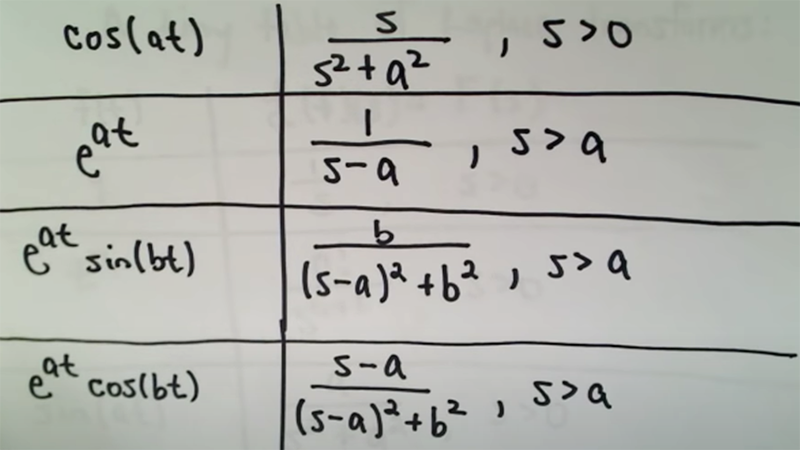 cos(at) s/(s²+a²) , s>0
e^{at} 1/(s-a) , s>a
e^{at} sin(bt) b/((s-a)²+b²) , s>a
e^{at} cos(bt) (s-a)/((s-a)²+b²) , s>a